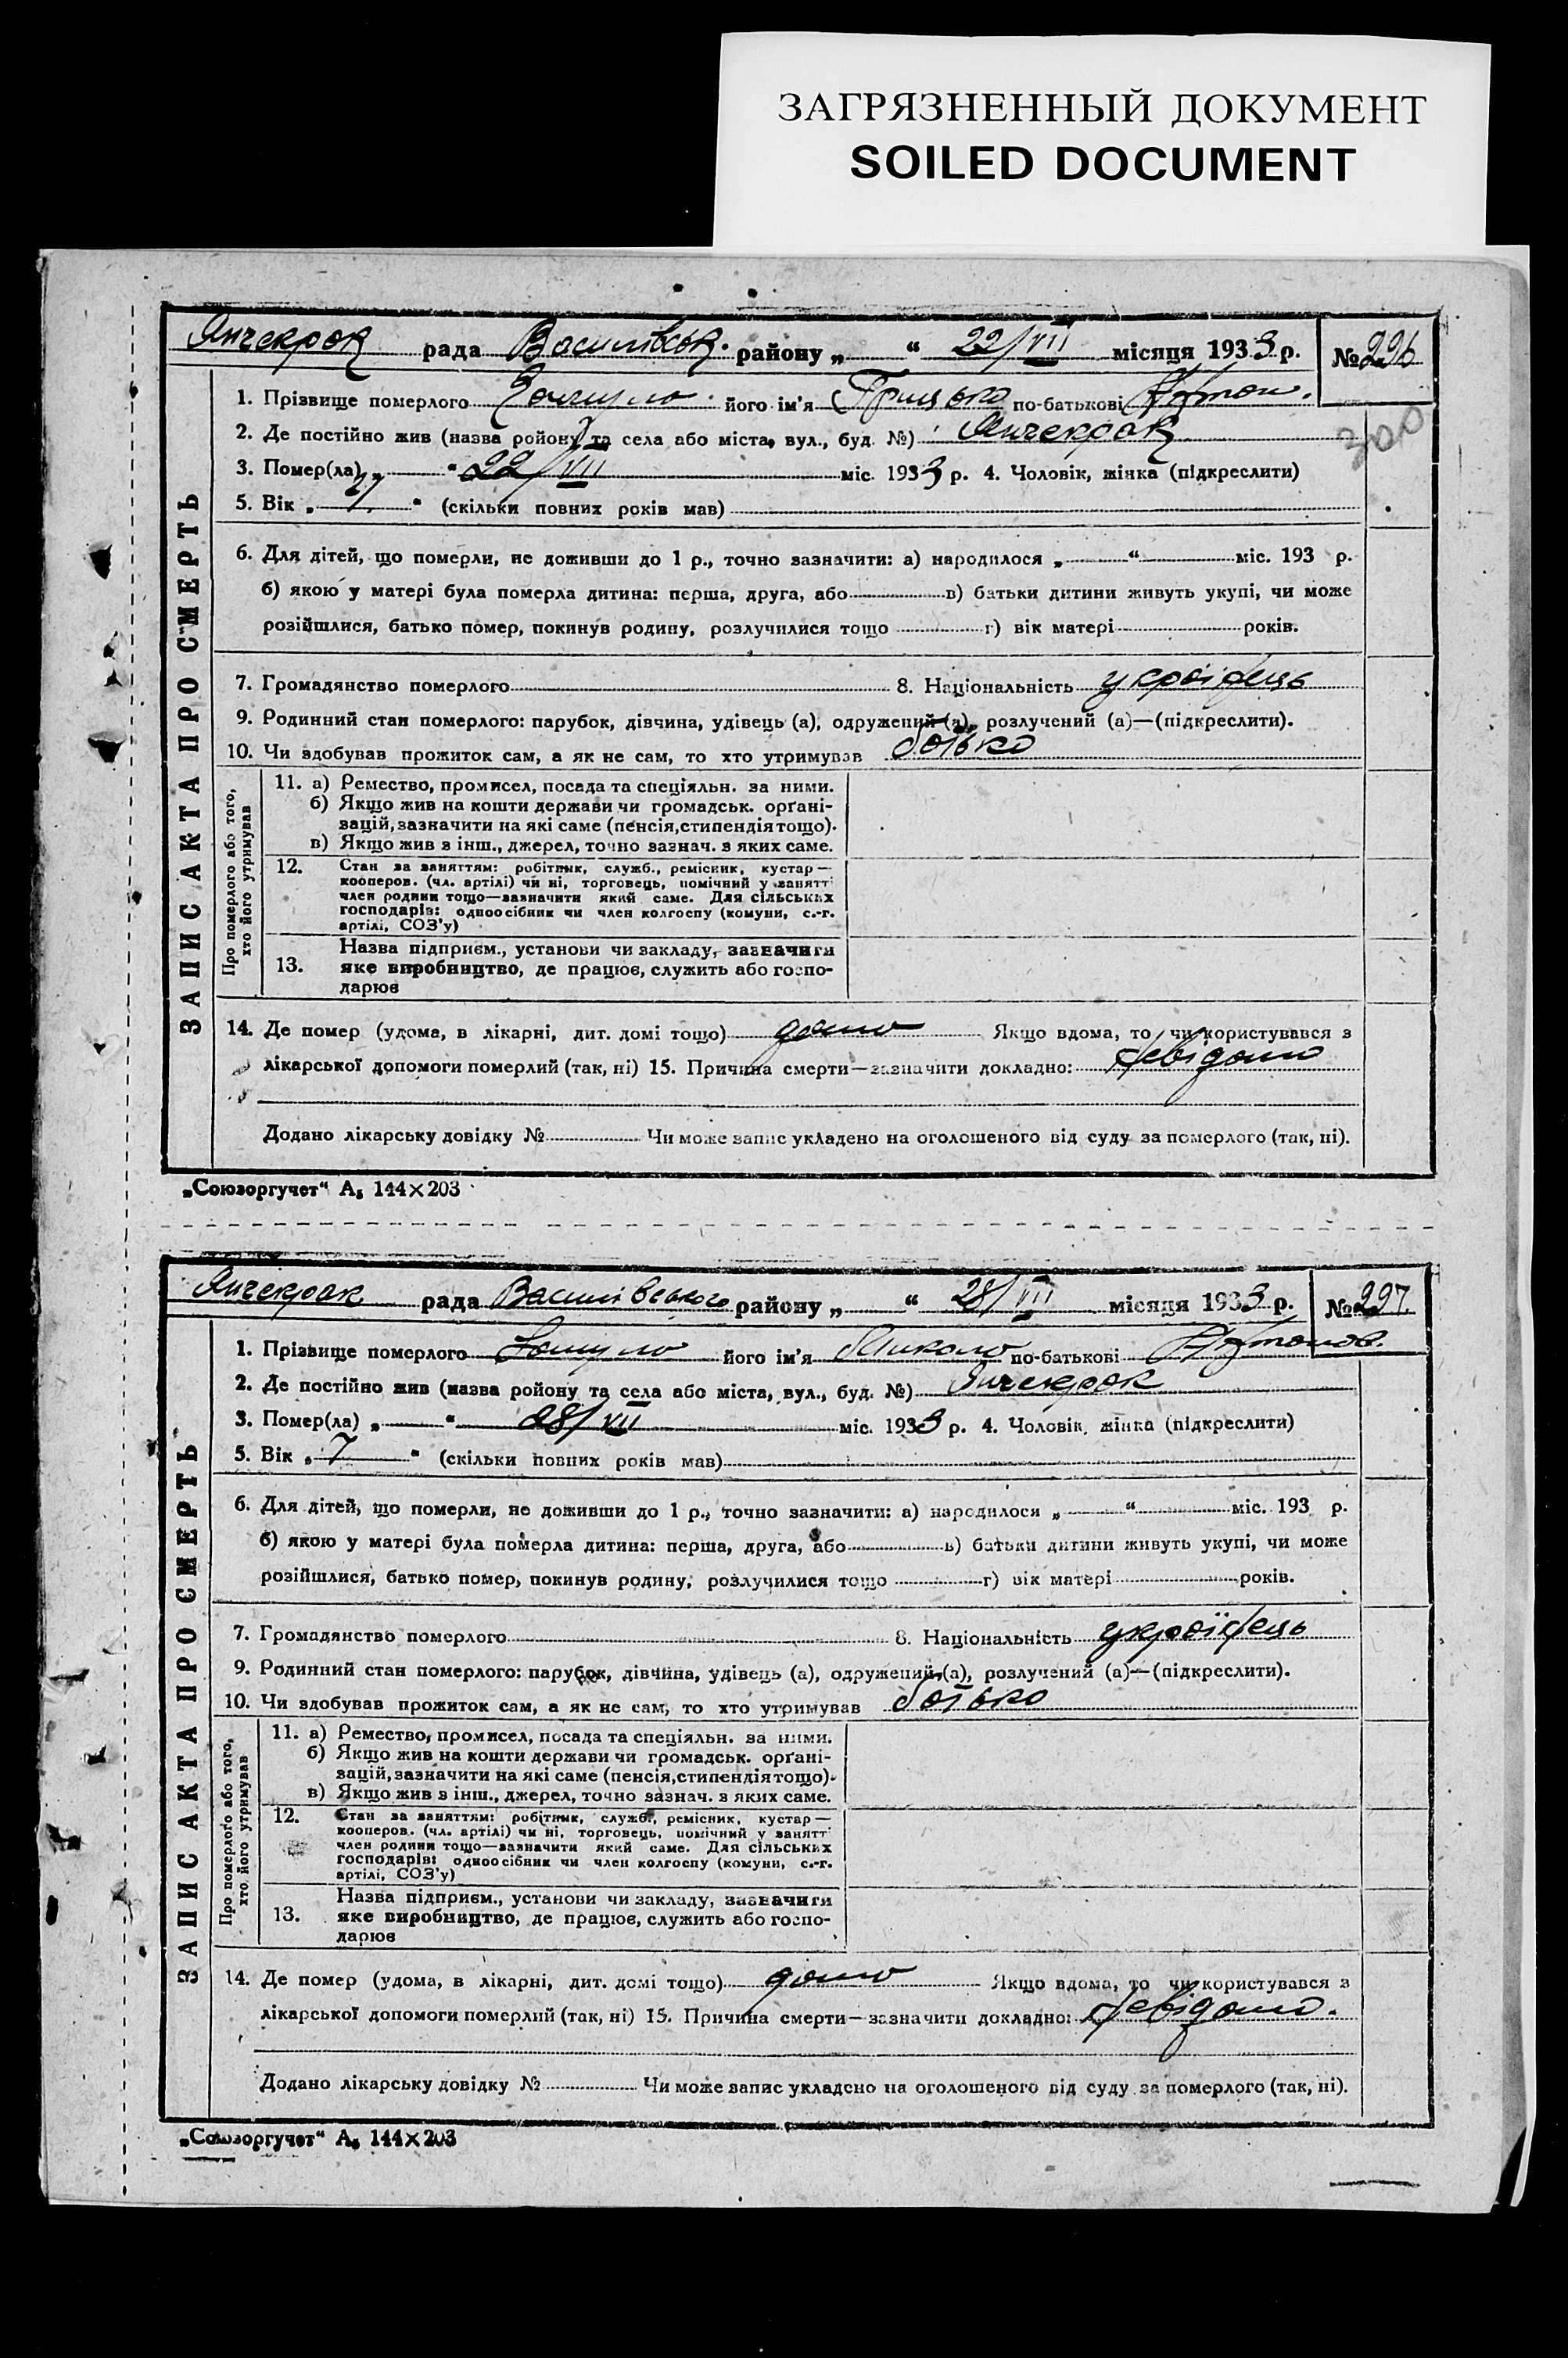 ЗАГРЯЗНЕННЫЙ ДОКУМЕНТ
SOILED DOCUMENT
Янчекрак рада Василивськ. району „ “ 22/VII місяця 1933 р. № 296
1. Прізвище померлого його ім'я Грицько по-батькові Антон.
300
2. Де постійно жив (назва району та села або міста, вул., буд. №) Янчекрак
3. Помер(ла) „ “ 22/VII міс. 1933 р. 4. Чоловік, жінка (підкреслити)
5. Вік „ “ (скільки повних років мав)
6. Для дітей, що померли, не доживши до 1 р., точно зазначити: а) народилося „ “ міс. 193 р.
б) якою у матері була померла дитина: перша, друга, або в) батьки дитини живуть укупі, чи може
розійшлися, батько помер, покинув родину, розлучилися тощо г) вік матері років.
7. Громадянство померлого 8. Національність українець
9. Родинний стан померлого: парубок, дівчина, удівець (а), одружений (а), розлучений (а)—(підкреслити).
10. Чи здобував прожиток сам, а як не сам, то хто утримував батько
ЗАПИС АКТА ПРО СМЕРТЬ
Про померлого або того,
хто його утримував
11. а) Ремество, промисел, посада та спеціяльн. за ними.
б) Якщо жив на кошти держави чи громадськ. орґані-
зацій, зазначити на які саме (пенсія, стипендія тощо).
в) Якщо жив з інш., джерел, точно зазнач. з яких саме.
12. Стан за заняттям: робітник, служб., ремісник, кустар—
кооперов. (чл. артілі) чи ні, торговець, помічний у занятт
член родини тощо—зазначити який саме. Для сільських
господарів: одноосібник чи член колгоспу (комуни, с.-г.
артілі, СОЗ'у)
Назва підприєм., установи чи закладу, зазначити
13. яке виробництво, де працює, служить або госпо-
дарює
14. Де помер (удома, в лікарні, дит. домі тощо) дома Якщо вдома, то чи користувався з
лікарської допомоги померлий (так, ні) 15. Причина смерти—зазначити докладно: невідомо
Додано лікарську довідку № Чи може запис укладено на оголошеного від суду за померлого (так, ні).
„Союзоргучет“ А5 144×203
Янчекрак рада Василівського району „ “ 28/VII місяця 1933 р. № 297.
1. Прізвище померлого його ім'я Микола по-батькові Антонов.
2. Де постійно жив (назва району та села або міста, вул., буд. №) Янчекрак
3. Помер(ла) „ “ 28/VII міс. 1933 р. 4. Чоловік, жінка (підкреслити)
5. Вік „ 7 “ (скільки повних років мав)
6. Для дітей, що померли, не доживши до 1 р., точно зазначити: а) народилося „ “ міс. 193 р.
б) якою у матері була померла дитина: перша, друга, або в) батьки дитини живуть укупі, чи може
розійшлися, батько помер, покинув родину, розлучилися тощо г) вік матері років.
7. Громадянство померлого 8. Національність українець
9. Родинний стан померлого: парубок, дівчина, удівець (а), одружений (а), розлучений (а)—(підкреслити).
10. Чи здобував прожиток сам, а як не сам, то хто утримував батько
ЗАПИС АКТА ПРО СМЕРТЬ
Про померлого або того,
хто його утримував
11. а) Ремество, промисел, посада та спеціяльн. за ними.
б) Якщо жив на кошти держави чи громадськ. орґані-
зацій, зазначити на які саме (пенсія, стипендія тощо).
в) Якщо жив з інш., джерел, точно зазнач. з яких саме.
12. Стан за заняттям: робітник, служб., ремісник, кустар—
кооперов. (чл. артілі) чи ні, торговець, помічний у занятт
член родини тощо—зазначити який саме. Для сільських
господарів: одноосібник чи член колгоспу (комуни, с.-г.
артілі, СОЗ'у)
Назва підприєм., установи чи закладу, зазначити
13. яке виробництво, де працює, служить або госпо-
дарює
14. Де помер (удома, в лікарні, дит. домі тощо) дома Якщо вдома, то чи користувався з
лікарської допомоги померлий (так, ні) 15. Причина смерти—зазначити докладно: невідомо.
Додано лікарську довідку № Чи може запис укладено на оголошеного від суду за померлого (так, ні).
„Союзоргучет“ А5 144×203